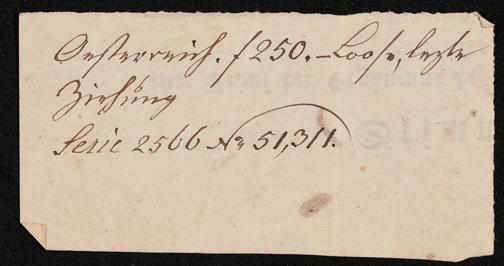 Oesterreich. f 250.–Loose, lezte
Ziehung
Serie 2566 No 51,311.